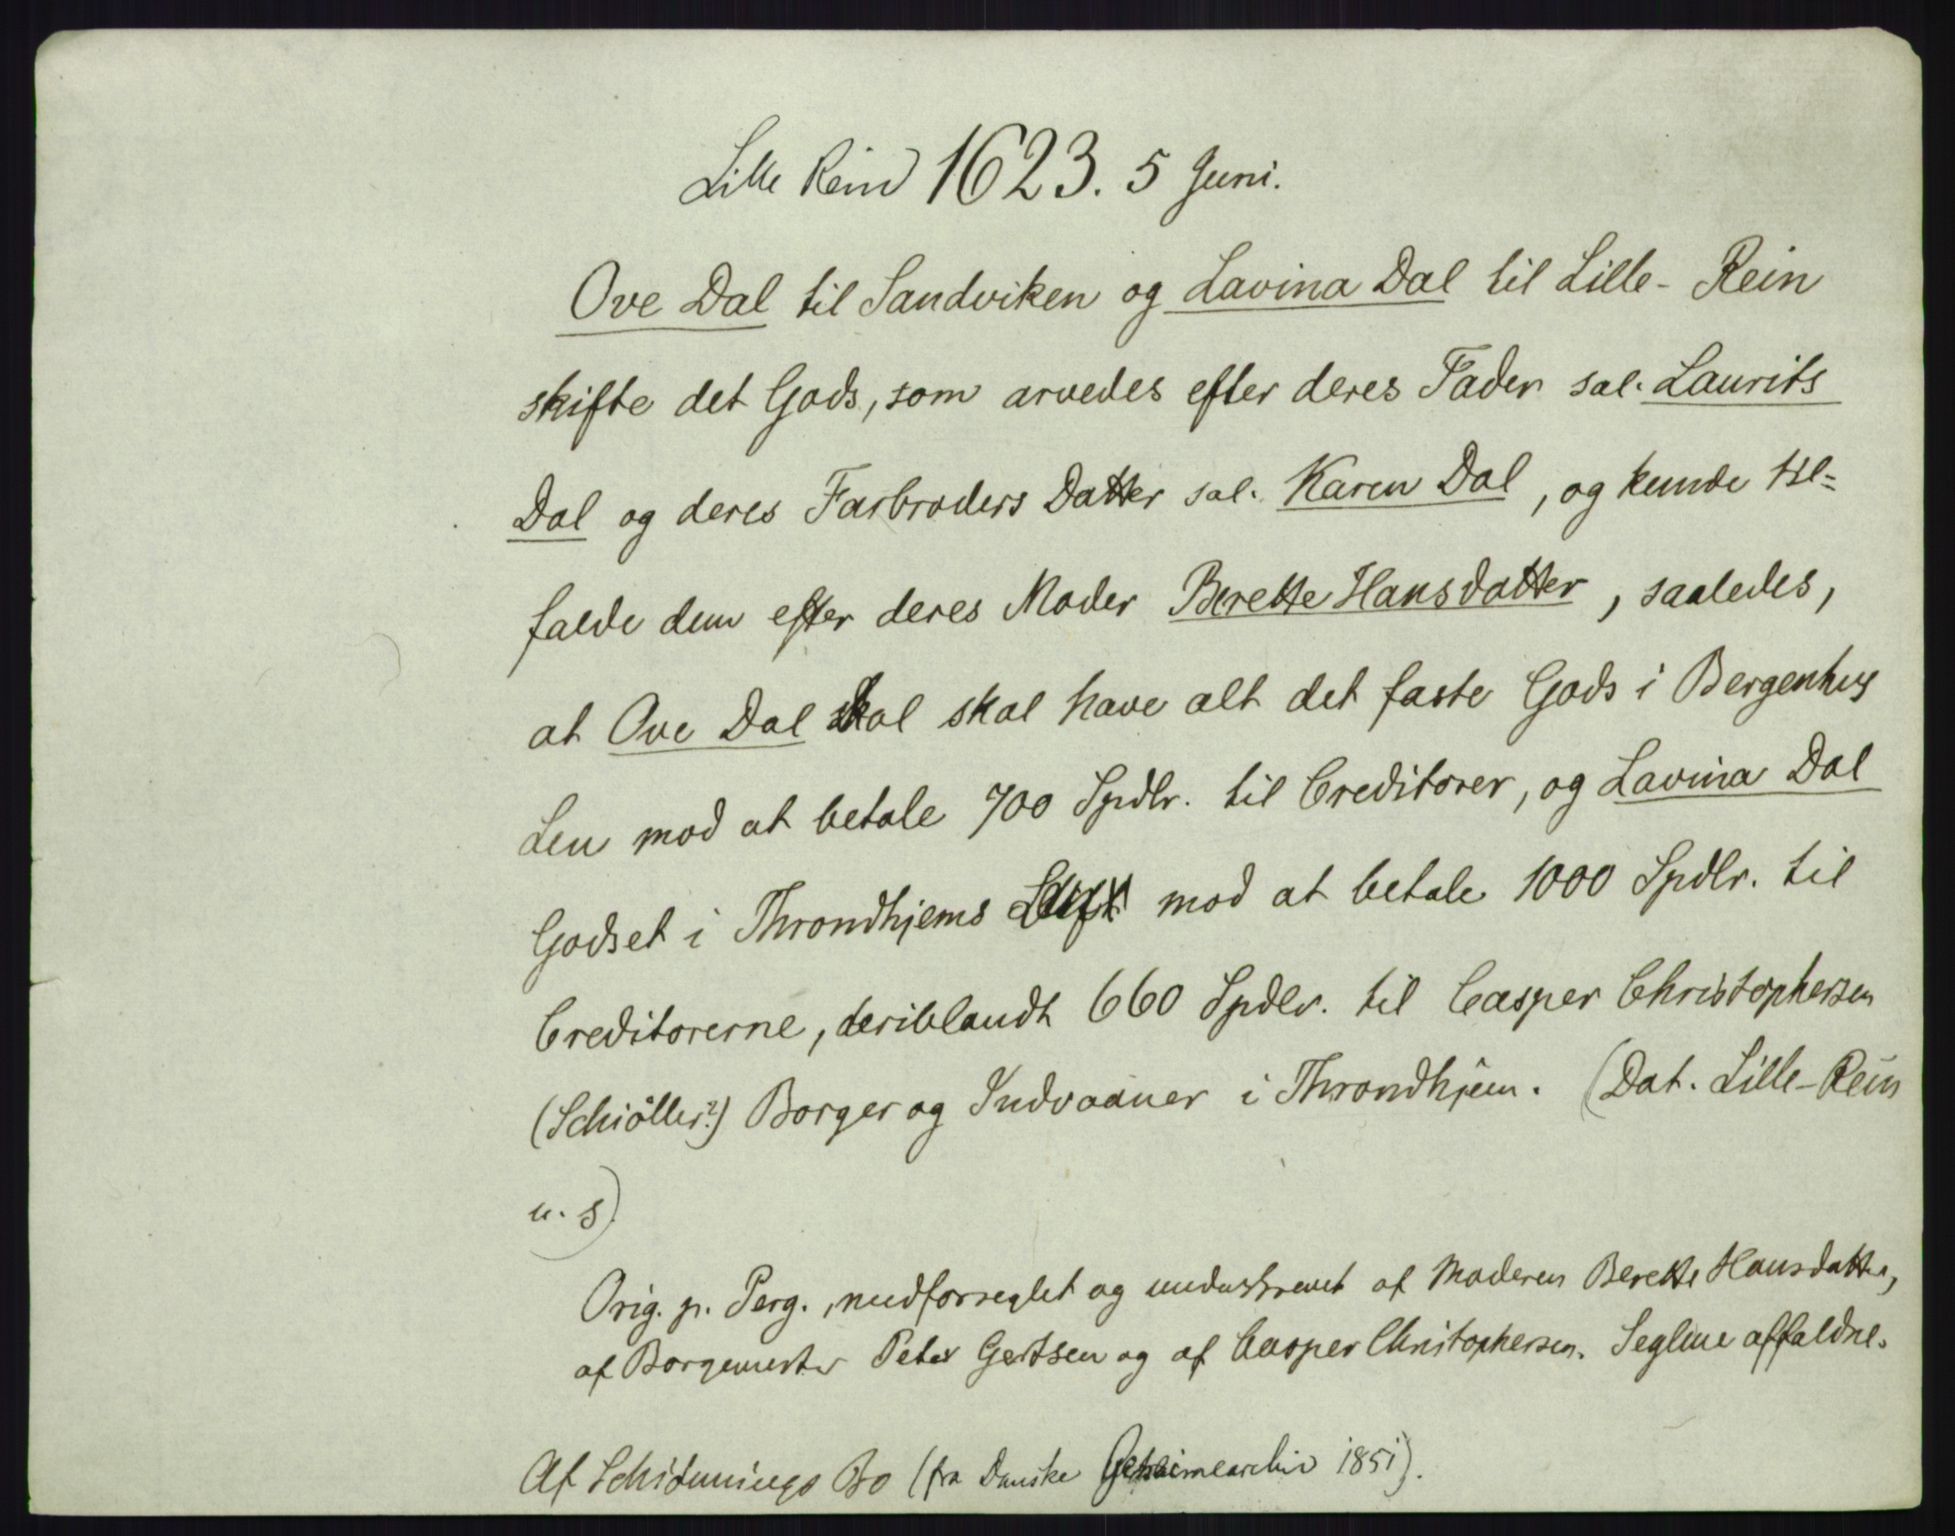 Lille Rein 1623. 5 Juni.
Ove Dal til Sandviken og Lavina Dal til Lille-Rein
skifte det Gods, som arvedes efter deres Fader sal. Laurits
Dal og deres Farbroders Datter sal. Karen Dal, og kunde til=
falde dem efter deres Moder Berette Hansdatter, saaledes,
at Ove Dal skal skal have alt det faste Gods i Bergenhus
Len mod at betale 700 Spdlr. til Creditorer, og Lavina Dal
Godset i Throndhjems mod at betale 1000 Spdlr. til
Creditorerne, deriblandt 660 Spdlr. til Casper Christophersen
(Schiöller?) Borger og Indvaaner i Throndhjem. (Dat. Lille-Rein
u. s).
Orig. p. Perg., medforseglet og underskrevet af Moderen Berette Hansdatter,
af Borgemester Peter Gertsen og af Casper Christophersen. Seglene affaldne.
Af Bo (fra Danske Geheimearchiv 1851).